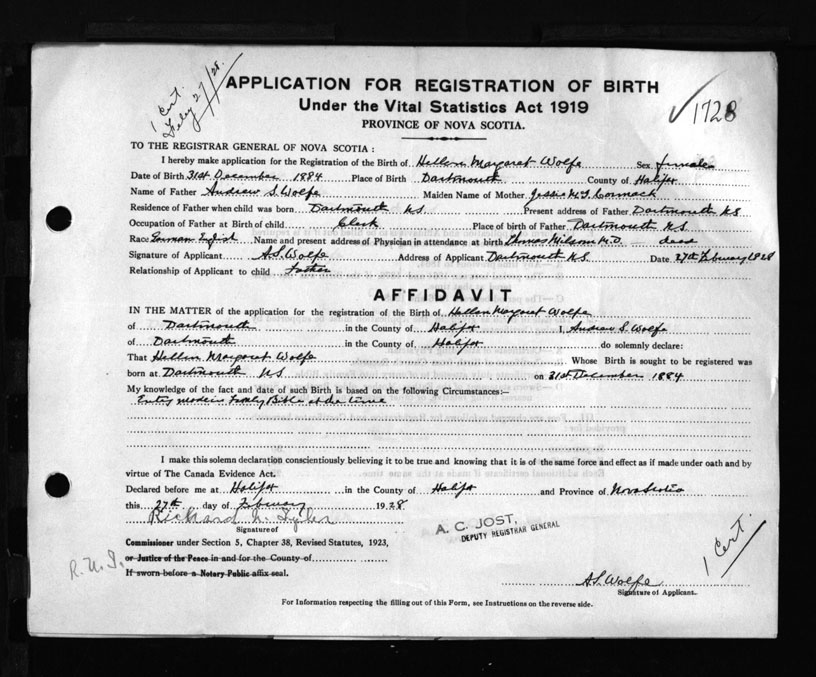 1 Cert.
Feby 27/28.
APPLICATION FOR REGISTRATION OF BIRTH
Under the Vital Statistics Act 1919
PROVINCE OF NOVA SCOTIA.
✓1728
TO THE REGISTRAR GENERAL OF NOVA SCOTIA :
I hereby make application for the Registration of the Birth of Hellen Margaret Wolfe Sex female
Date of Birth 31st December 1884 Place of Birth Dartmouth County of Halifax
Name of Father Andrew S. Wolfe Maiden Name of Mother
Residence of Father when child was born Dartmouth N.S. Present address of Father Dartmouth N.S
Occupation of Father at Birth of child Clerk Place of birth of Father Dartmouth N.S
Race German English Name and present address of Physician in attendance at birth Thomas Milsom M.D. dead
Signature of Applicant A.S. Wolfe Address of Applicant Dartmouth N.S. Date 27th February 1928
Relationship of Applicant to child father
AFFIDAVIT
IN THE MATTER of the application for the registration of the Birth of Hellen Margaret Wolfe
of Dartmouth in the County of Halifax I, Andrew S. Wolfe
of Dartmouth in the County of Halifax do solemnly declare:
That Hellen Margaret Wolfe Whose Birth is sought to be registered was
born at Dartmouth N.S on 31st December 1884
My knowledge of the fact and date of such Birth is based on the following Circumstances:—
Entry made in Family Bible at the time
I make this solemn declaration conscientiously believing it to be true and knowing that it is of the same force and effect as if made under oath and by
virtue of The Canada Evidence Act.
Declared before me at Halifax in the County of Halifax and Province of Nova Scotia
this 27th day of February 1928
Richard
Signature of
Commissioner under Section 5, Chapter 38, Revised Statutes, 1923,
or Justice of the Peace in and for the County of
If sworn before a Notary Public affix seal.
A. C. JOST,
DEPUTY REGISTRAR GENERAL
1 Cert.
A.S. Wolfe
Signature of Applicant.
For Information respecting the filling out of this Form, see Instructions on the reverse side.